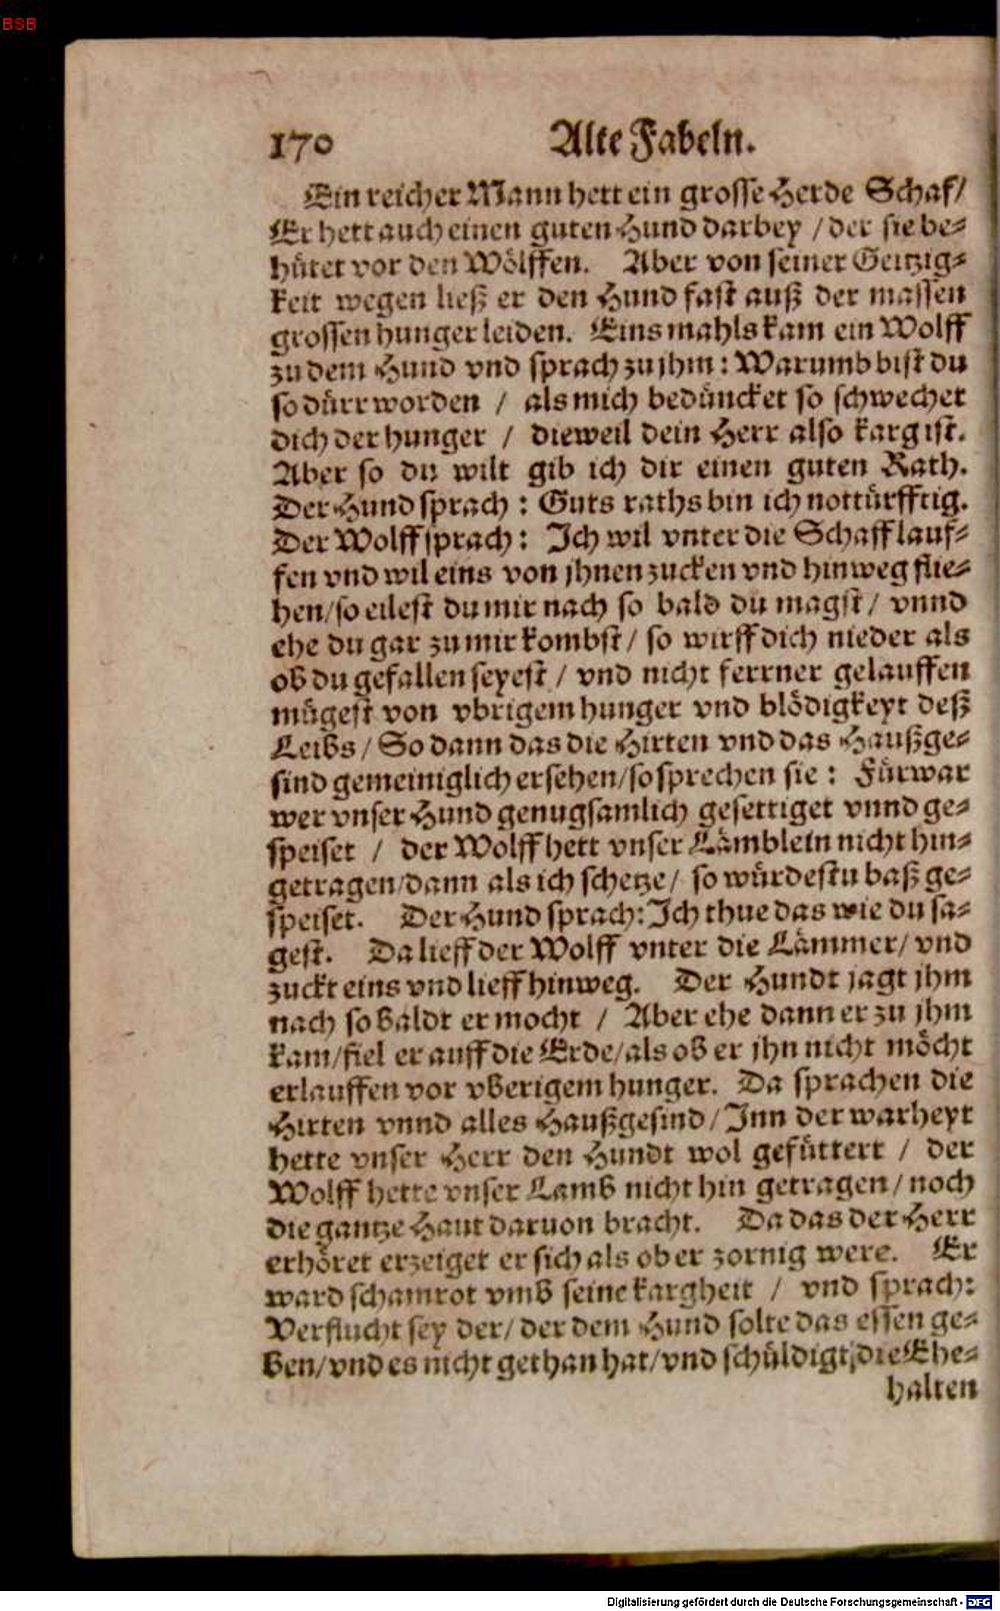 BSB
170 Alte Fabeln.
Ein reicher Mann hett ein grosse Herde Schaf/
Er hett auch einen guten Hund darbey / der sie be⸗
hütet vor den Wölffen. Aber von seiner Geitzig⸗
keit wegen ließ er den Hund fast auß der massen
grossen hunger leiden. Eins mahls kam ein Wolff
zu dem Hund vnd sprach zu jhm: Warumb bist du
so dürr worden / als mich bedüncket so schwechet
dich der hunger / dieweil dein Herr also karg ist.
Aber so du wilt gib ich dir einen guten Rath.
Der Hund sprach: Guts raths bin ich nottürfftig.
Der Wolff sprach: Ich wil vnter die Schaff lauf⸗
fen vnd wil eins von jhnen zucken vnd hinweg flie⸗
hen/so eilest du mir nach so bald du magst/ vnnd
ehe du gar zu mir kombst/ so wirff dich nieder als
ob du gefallen seyest/ vnd nicht ferrner gelauffen
mügest von vbrigem hunger vnd blödigkeyt deß
Leibs/ So dann das die Hirten vnd das Haußge⸗
sind gemeiniglich ersehen/so sprechen sie: Fürwar
wer vnser Hund genugsamlich gesettiget vnnd ge⸗
speiset / der Wolff hett vnser Lämblein nicht hin⸗
getragen/dann als ich schetze/ so würdestu baß ge⸗
speiset. Der Hund sprach: Ich thue das wie du sa⸗
gest. Da lieff der Wolff vnter die Lämmer/ vnd
zuckt eins vnd lieff hinweg. Der Hundt jagt jhm
nach so baldt er mocht / Aber ehe dann er zu jhm
kam/fiel er auff die Erde/als ob er jhn nicht möcht
erlauffen vor vberigem hunger. Da sprachen die
Hirten vnnd alles Haußgesind/Inn der warheyt
hette vnser Herr den Hundt wol gefüttert / der
Wolff hette vnser Lamb nicht hin getragen/noch
die gantze Haut daruon bracht. Da das der Herr
erhöret erzeiget er sich als ob er zornig were. Er
ward schamrot vmb seine kargheit / vnd sprach:
Verflucht sey der/ der dem Hund solte das essen ge⸗
ben/vnd es nicht gethan hat/vnd schüldigt die Ehe⸗
halten
Digitalisierung gefördert durch die Deutsche Forschungsgemeinschaft - DFG